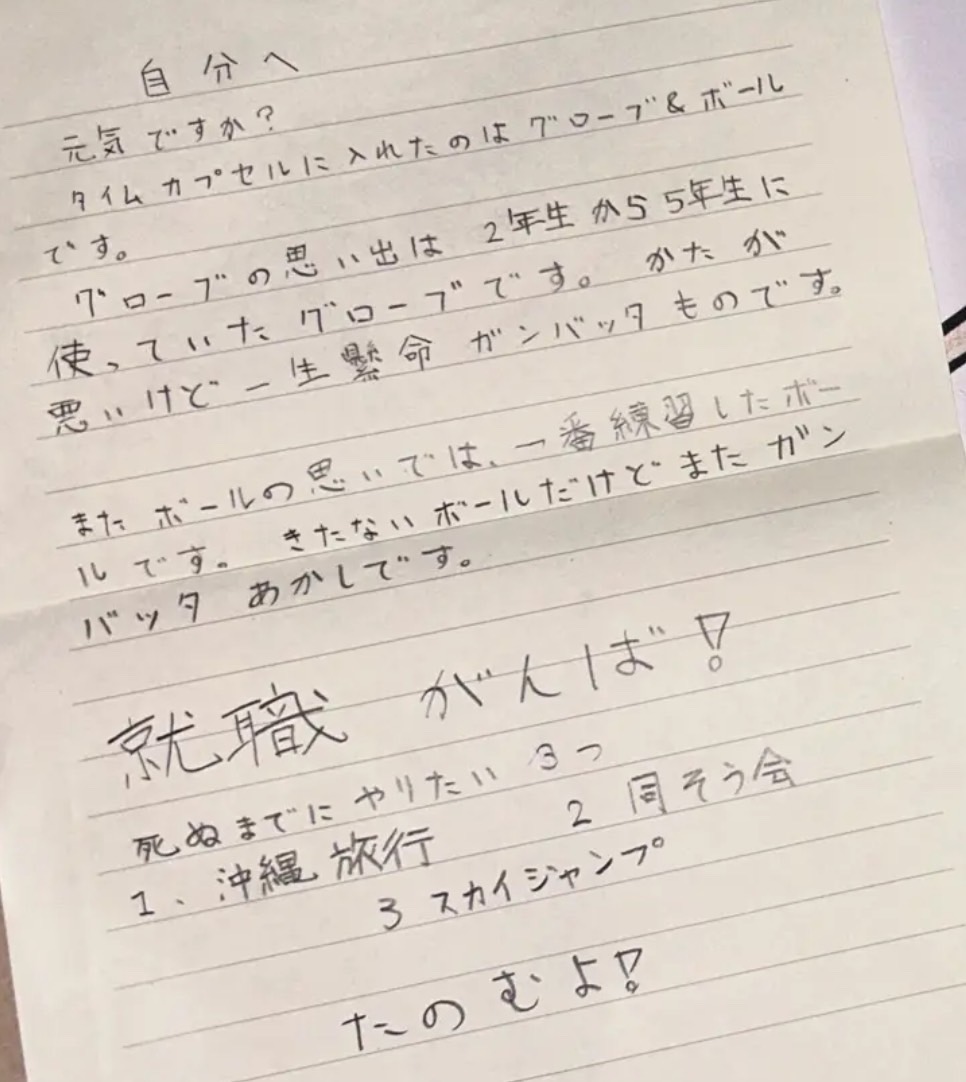 自分へ
元気ですか?
タイムカプセルに入れたのはグローブ&ボール
です。
グローブの思い出は 2年生から5年生に
使っていたグローブです。 かたが
悪いけど一生懸命 ガンバッタものです。
またボールの思いでは、一番練習したボー
ルです。 きたないボールだけどまたガン
バッタ あかしです。
就職 がんば!
死ぬまでにやりたい 3つ
1、沖縄旅行 2 同そう会
3 スカイジャンプ
たのむよ!